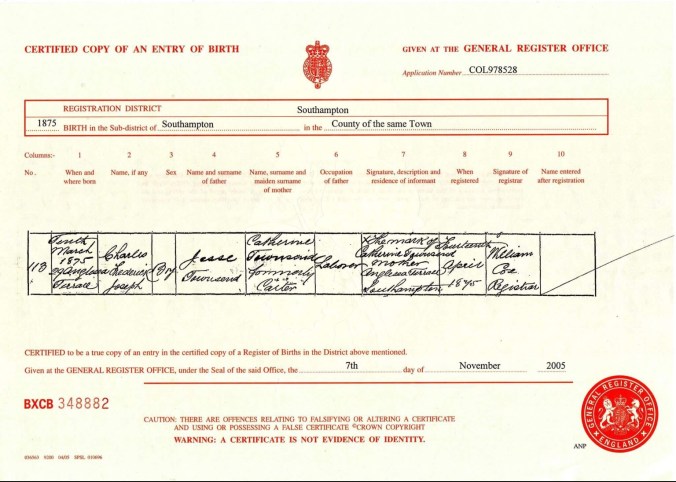 CERTIFIED COPY OF AN ENTRY OF BIRTH
GIVEN AT THE GENERAL REGISTER OFFICE
Application Number COL978528
REGISTRATION DISTRICT Southampton
1875 BIRTH in the Sub-district of Southampton in the County of the same Town
Columns:- 1 2 3 4 5 6 7 8 9 10
No. When and where born Name, if any Sex Name and surname of father Name, surname and maiden surname of mother Occupation of father Signature, description and residence of informant When registered Signature of registrar Name entered after registration
118
Tenth
March
1875
Anglesea
Terrace
Charles
Frederick
Joseph
Boy
Jesse
Townsend
Catherine
Townsend
formerly
Carter
Laborer
X The mark of
Catherine Townsend
mother
Anglesea Terrace
Southampton
Fourteenth
April
1875
William
Cox
Registrar
CERTIFIED to be a true copy of an entry in the certified copy of a Register of Births in the District above mentioned.
Given at the GENERAL REGISTER OFFICE, under the Seal of the said Office, the 7th day of November 2005
BXCB 348882
CAUTION: THERE ARE OFFENCES RELATING TO FALSIFYING OR ALTERING A CERTIFICATE
AND USING OR POSSESSING A FALSE CERTIFICATE ©CROWN COPYRIGHT
WARNING: A CERTIFICATE IS NOT EVIDENCE OF IDENTITY.
GENERAL REGISTER OFFICE
ENGLAND
ANP